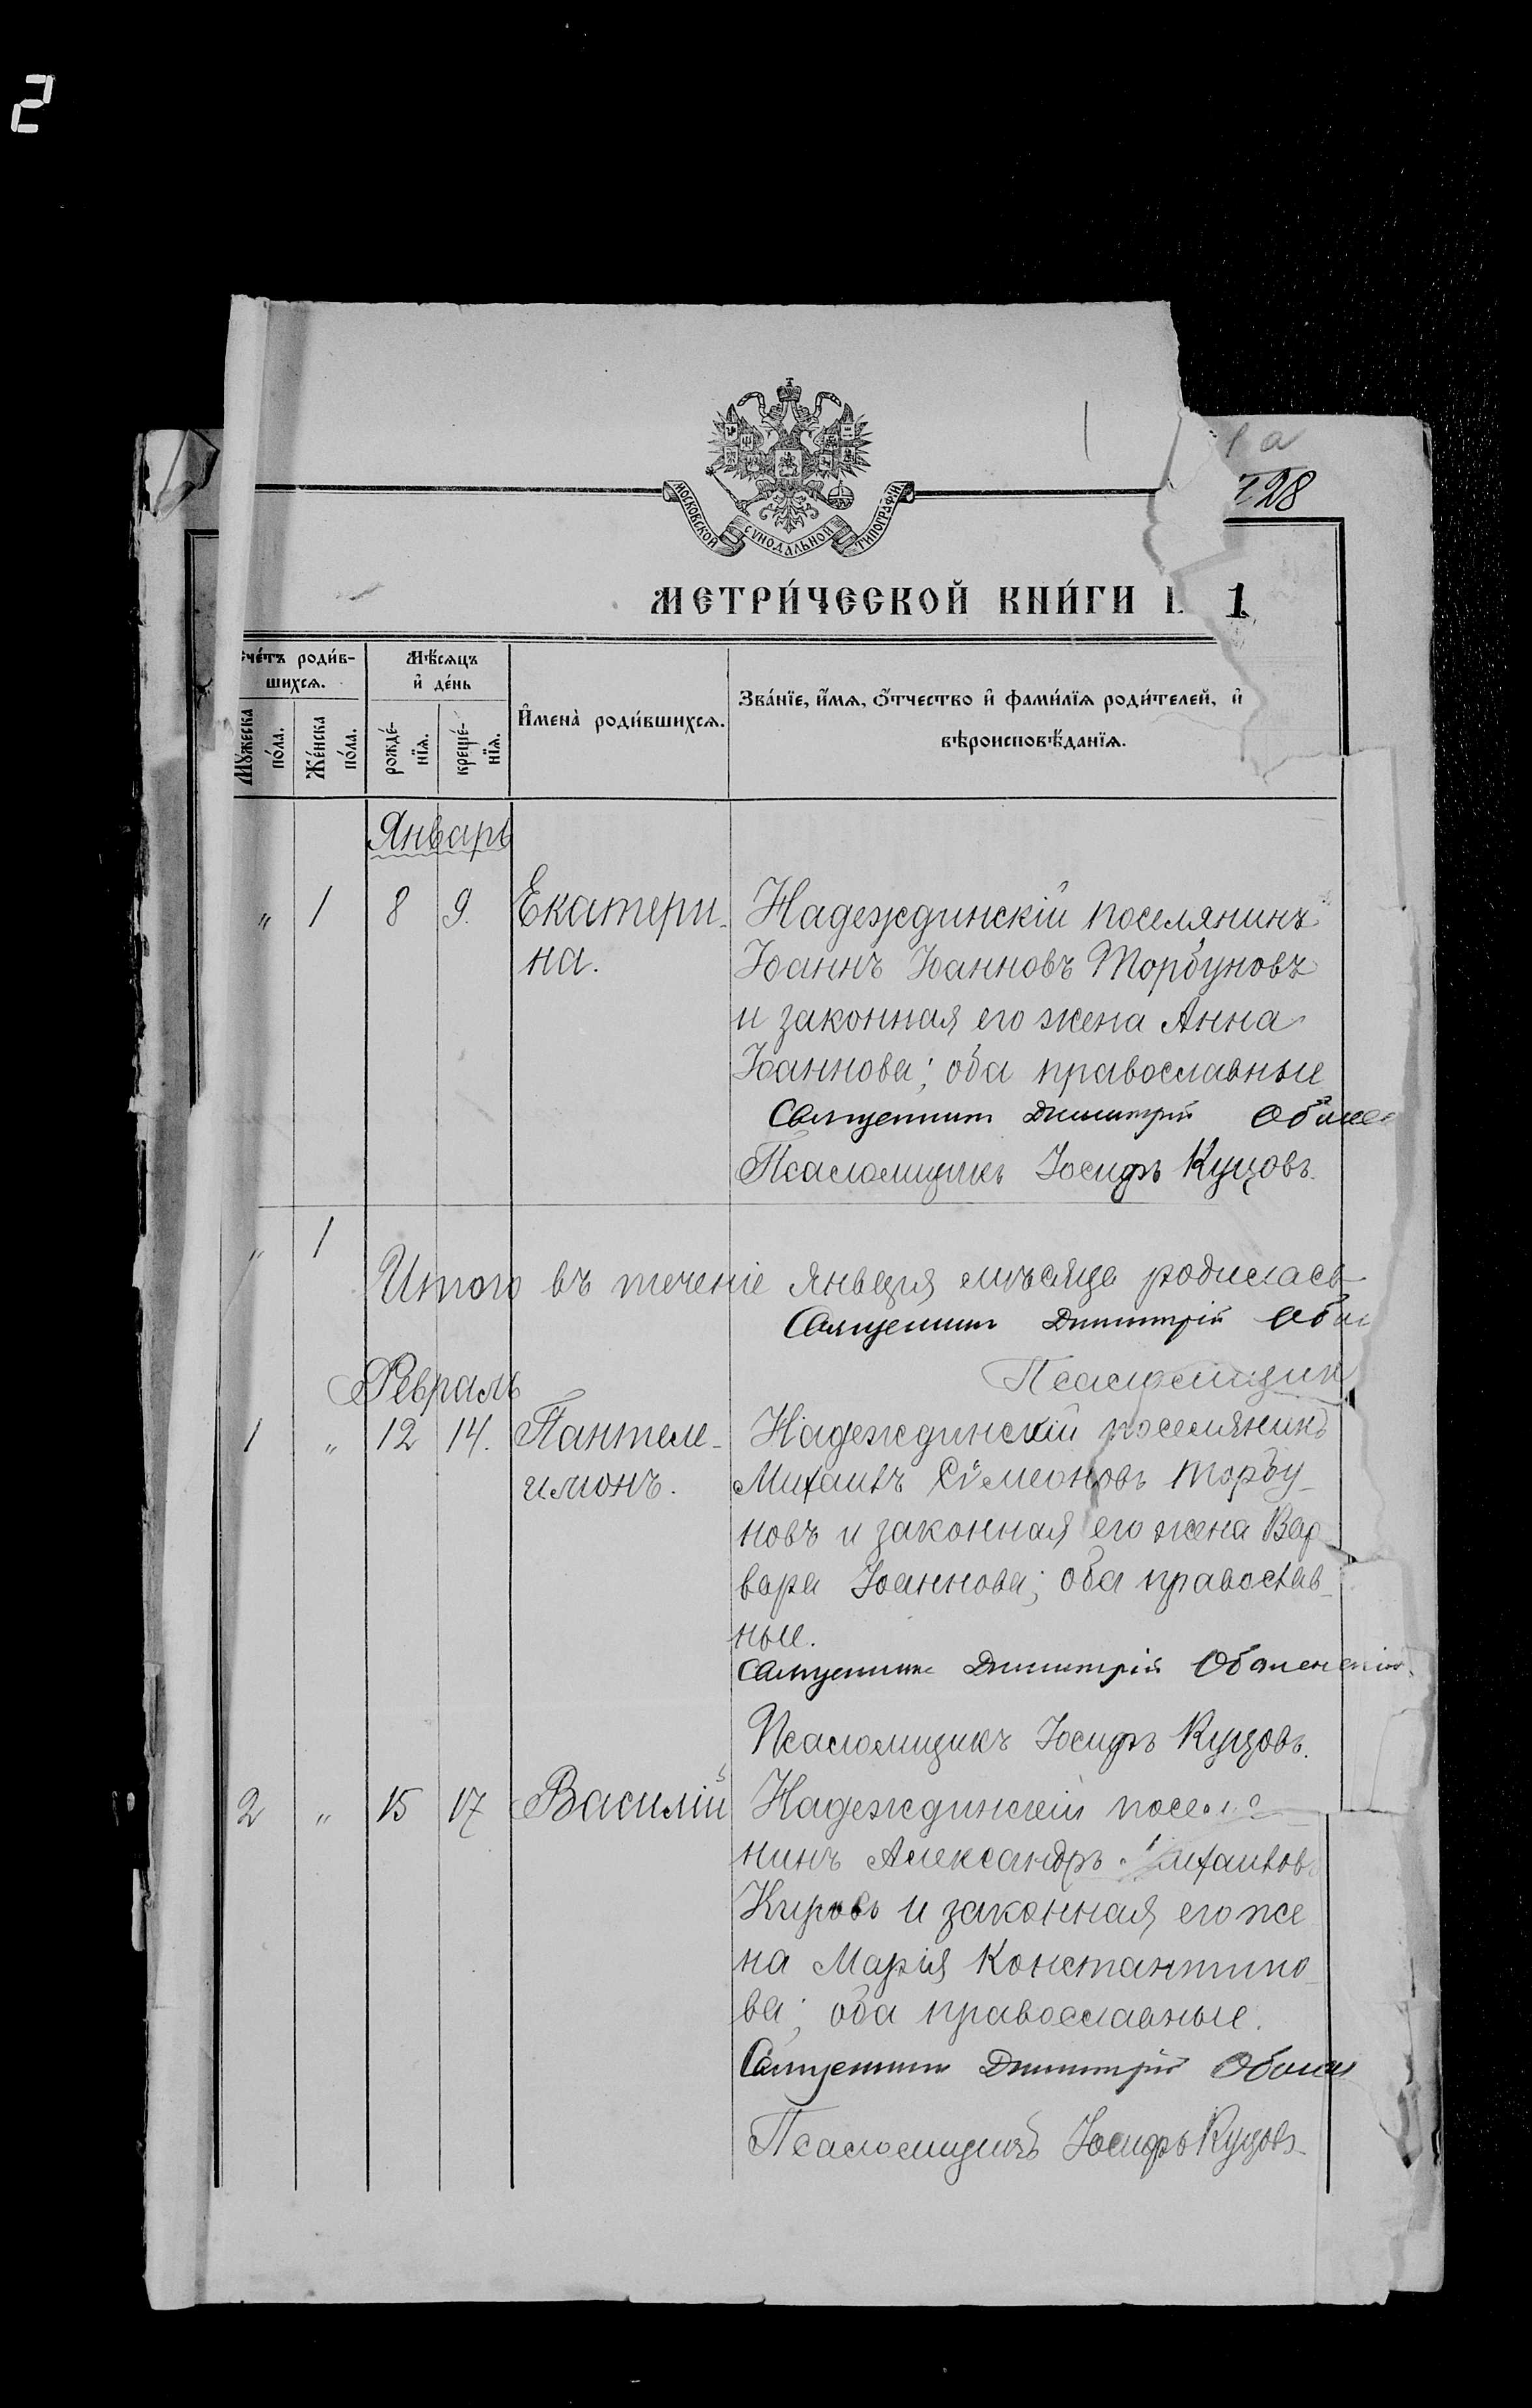 2
1 а
728
МОСКОВСКОЙ СУНОДАЛЬНОЙ ТИПОГРАФІИ
МЕТРИ́ЧЕСКОЙ КНИ́ГИ 1
счётъ роди́в-
шихсѧ.
Мѣ́сѧцъ
и҆ де́нь
Мꙋ́жеска по́ла.
Же́нска по́ла.
рожде́-нїѧ.
креще́-нїѧ.
И҆мена̀ роди́вшихсѧ.
Зва́нїе, и҆́мѧ, ѻ҆́тчество и҆ фами́лїѧ роди́телей, и҆
вѣроисповѣ́данїѧ.
Январь
" 1 8 9. Екатери- Надеждинскій поселянинъ
на. Іоаннъ Іоанновъ Торбуновъ
и законная его жена Анна
Іоаннова; оба православные
Священникъ Димитрій
Псаломщикъ Іосифъ Куцовъ.
" 1
Итого въ теченіе января мѣсяца родилась
Священникъ Димитрій
Псаломщик
Февраль
1 " 12 14. Пантеле- Надеждинскій поселянинъ
имонъ. Михаилъ Сѵмеоновъ Торбу-
новъ и законная его жена Вар-
вара Іоаннова; оба православ-
ные.
Священникъ Димитрій
Псаломщикъ Іосифъ Куцовъ.
2 " 15 17 Василій Надеждинскій поселя
нинъ Александръ Михаиловъ
Кировъ и законная его же
на Марія Константино-
ва; оба православные.
Священникъ Димитрій
Псаломщикъ Іосифъ Куцовъ